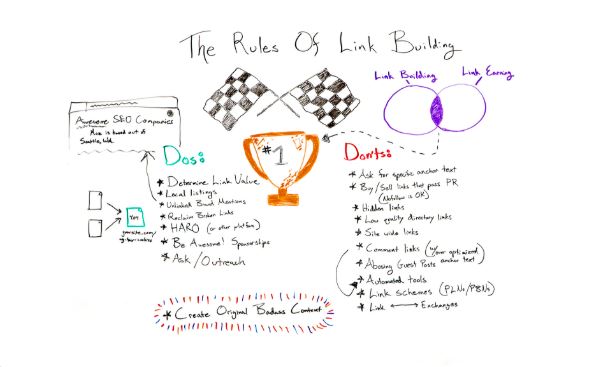 The Rules Of Link Building
Link Building
Link Earning
Awesome SEO Companies
Moz is based out of
Seattle, WA.
#1
Dos:
* Determine Link Value
* Local listings
* Unlinked Brand Mentions
* Reclaim Broken Links
* HARO (or other platform)
* Be Awesome! Sponsorships
* Ask/Outreach
You
yoursite.com/
Don'ts:
* Ask for specific anchor text
* Buy/Sell links that pass PR
(Nofollow is OK)
* Hidden links
* Low quality directory links
* Site wide links
* Comment links (w/ over optimized
anchor text)
* Abusing Guest Posts
* Automated tools
* Link schemes (PLNs/PBNs)
* Link Exchanges
* Create Original Badass Content